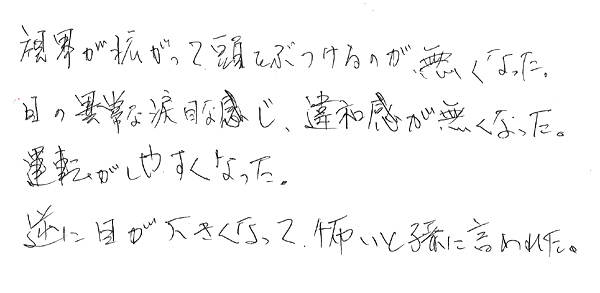 視界が拡がって頭をぶつけるのが無くなった。
目の異常な涙目な感じ、違和感が無くなった。
運転がしやすくなった。
逆に目が大きくなって、怖いと孫に言われた。